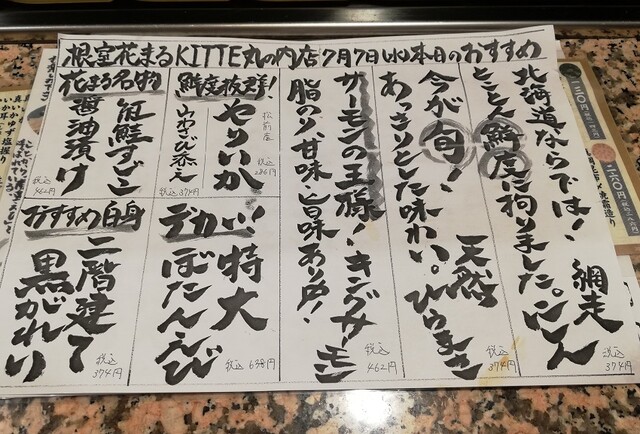 根室花まるKITTE丸の内店7月7日(水)本日のおすすめ
北海道ならでは!
とことん鮮度に拘りました。
網走
にしん
税込
374円
今が旬!
あっさりとした味わい。
天然
ひらまさ
税込
374円
サーモンの王様!キングサーモン
脂のり、甘味・旨味あり〼!
税込
462円
鮮度抜群!
松前産
やりいか
税込
286円
山わさび添え
税込374円
花まる名物
紅鮭すじこ
醤油漬け
税込
462円
デカい!
特大
ぼたんえび
税込 638円
おすすめ白身
二階建て
黒がれい
税込
374円